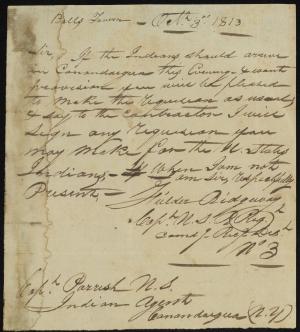 Bells Tavern — Oct 3rd 1813
Sir, If the Indians should arrive
in Canandaqua this Evening & want
provision you will be pleased
to make the Requision as usual
& say to the Contractor I will
sign any Requision you
may make for the U. States
Indians, — When I am not
Present — am Sir, Respectfully
Fielder Ridgeway
Capt U.S. R Regt
Comdg
No 3
Capt Parrish U.S.
Indian Agent
Canandaqua (N.Y)